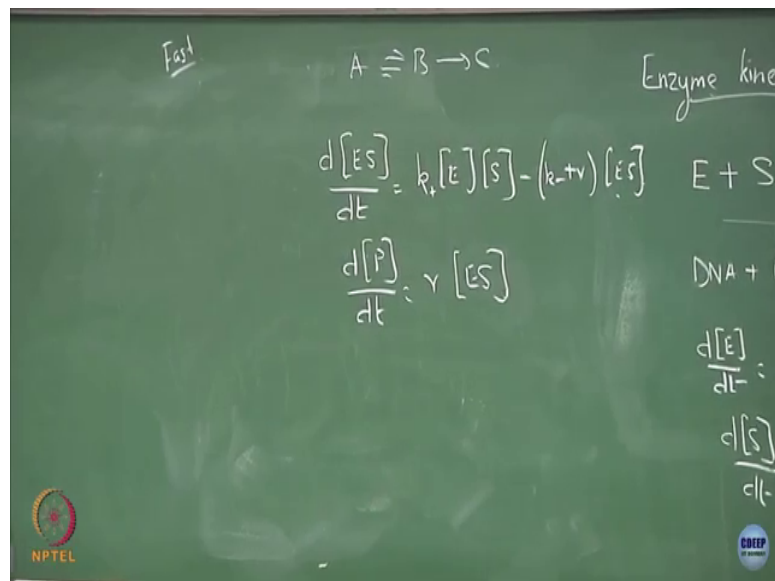 Fast
A ⇌ B → C
Enzyme kine
d[ES]/dt = k₊[E][S] - (k₋+r)[ES]
E + S
d[P]/dt = r[ES]
DNA +
d[E]/dt =
d[S]/dt
NPTEL
CDEEP
IIT BOMBAY